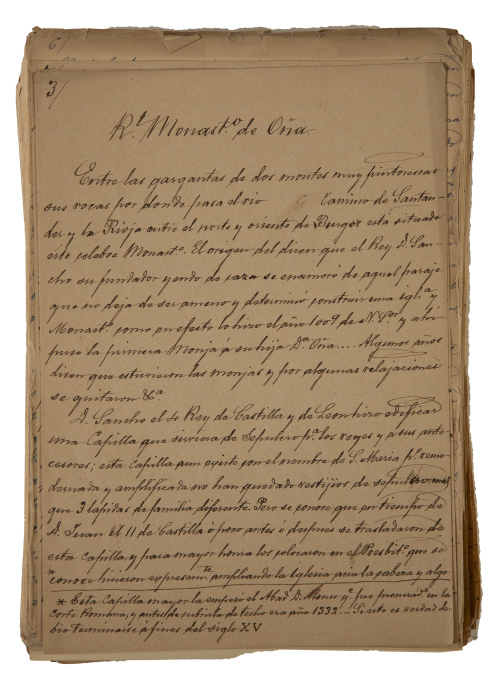 6/
3/
Rl Monasto de Oña.
Entre las gargantas de dos montes muy pintorescas
sus rocas por donde pasa el rio Camino de Santan-
der y la Rioja entre el norte y oriente de Burgos está situado
este celebre Monasto. El origen del dicen que el Rey D. San-
cho su fundador yendo de caza se enamoró de aquel paraje
que no deja de ser ameno y determinó construir una iglia y
Monasto como en efecto lo hizo el año 1009 de N. y ahi
puso la primera Monja á su hija Da Oña.... Algunos años
dicen que estuvieron las monjas y por algunas relajaciones
se quitaron &a
D. Sancho el Rey de Castilla y de Leon hizo edificar
una Capilla que sirviera de sepulcro pa los reyes y a sus ante-
cesores; esta capilla aun existe con el nombre de S. Maria po remo-
dernada y amplificada no han quedado vestijios de sepulcro mas
que 3 lapidas de familia diferente. Pero se conoce que en tiempo de
D. Juan el II de Castilla ó poco antes ó despues se trasladaron de
esta capilla, y para mayor honra los colocaron en el Presbito que se
*conoce hicieron expresamte ampliando la Iglesia acia la cabeza y algo
* Esta Capilla mayor la empezó el Abad D. Alonso qe fue procurador en la
Corte Romana, y antes de cubrirla de techo era año 1332.- Si esto es verdad de-
bió terminarse á fines del siglo XV